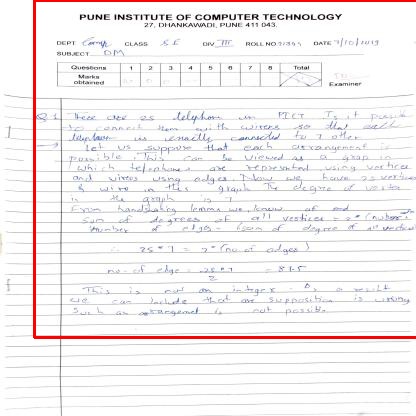 PUNE INSTITUTE OF COMPUTER TECHNOLOGY
27, DHANKAWADI, PUNE 411 043.
DEPT Comp CLASS SE DIV III ROLL NO. DATE 7/10/2019
SUBJECT DM
Questions 1 2 3 4 5 6 7 8 Total
Marks obtained
Examiner
Q.1 There are 25 telephon in PICT Is it possible
to connect them with wires so that each
telephone is exactly connected to 7 other
→ Let us suppose that each arrangement is
possible. This can be viewed as a grap in
which telephones are represented using vertices
and wires using edges. Now we have 25 vertices
& wire in this graph The degree of vertex
in the graph is 7
From handshaking lemma we know
sum of degrees of all vertices = 2*
Number of edges = (sum of degree of all vertices
∴ 25*7 = 2*(no of edges)
no. of edge = 25*7 = 87.5
2
This is not an integer. As a result
we can include that our supposition is wrong
such an arrangemet is not possible.